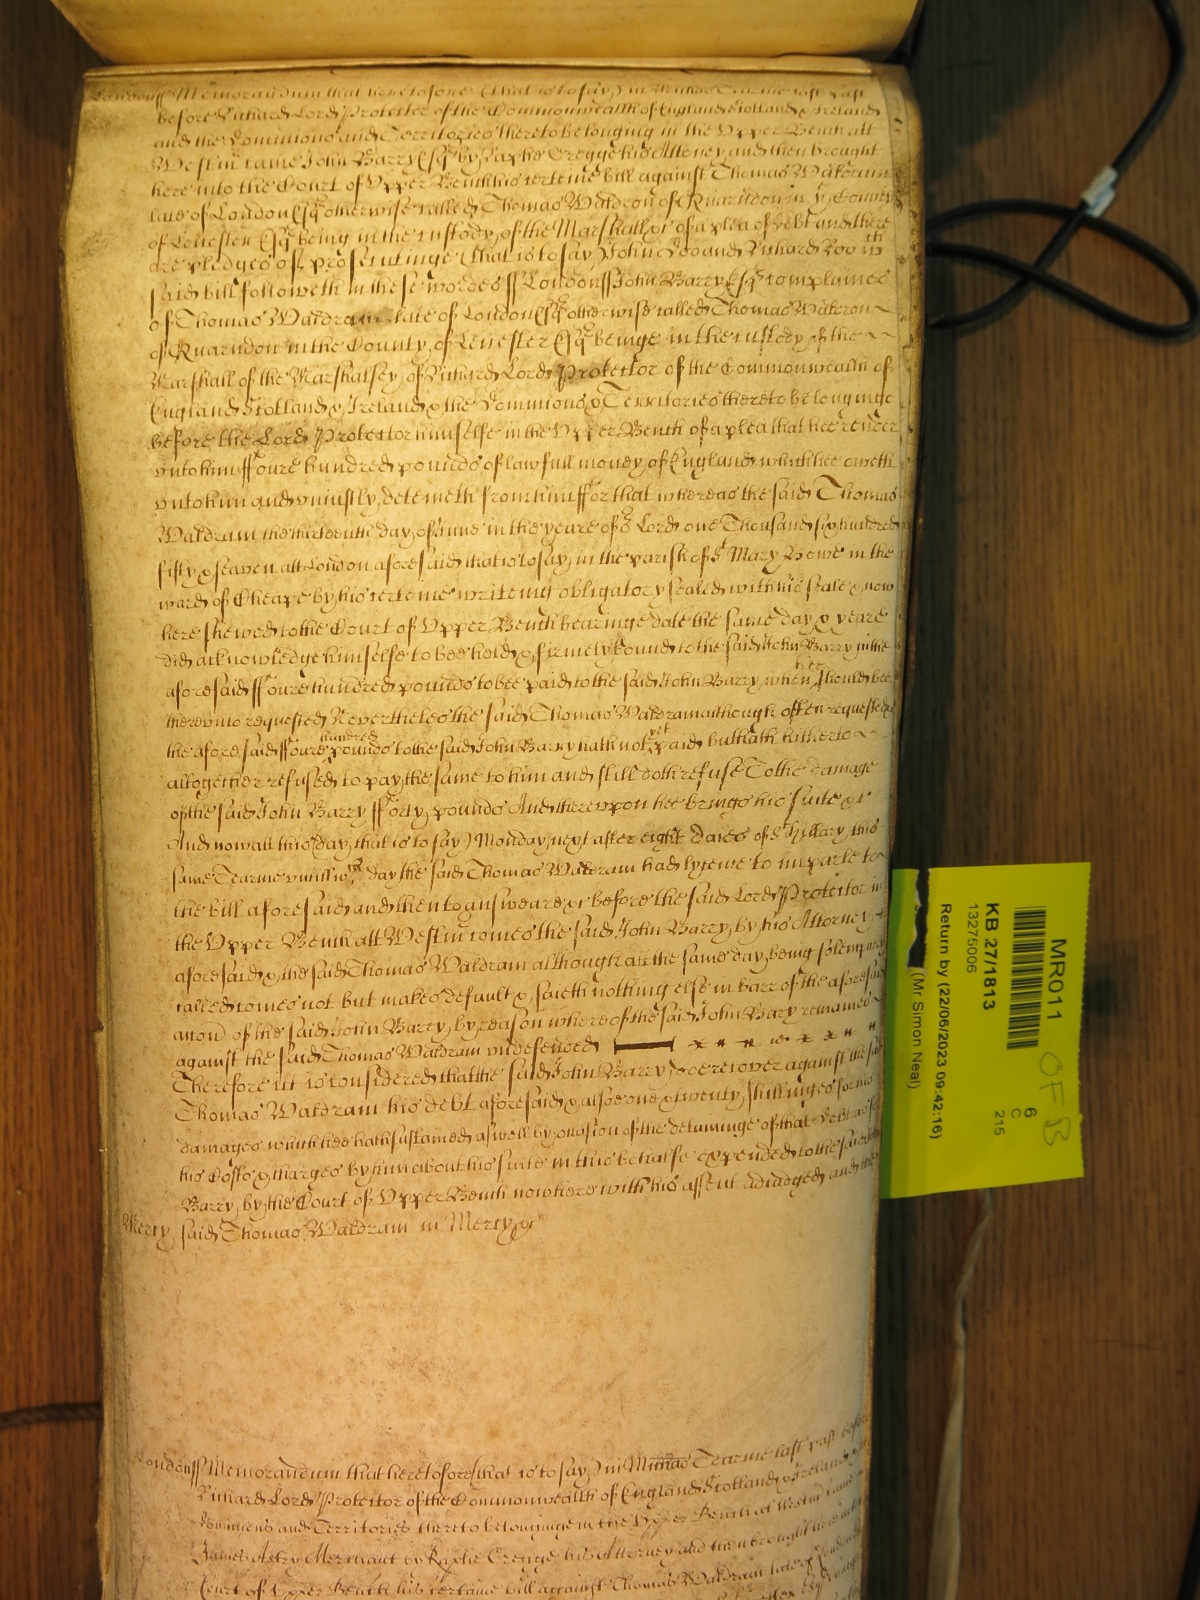 Londonss Memorandum that heretofore (that is to say) in Michas Tearme last past
before Richard Lord Protector of the Commonwealth of England Scotland & Ireland
and the Dominions and Territories thereto belonging in the Upper Bench att
Westmr came John Barry Esqr by Raphe Cregge his Attorney and then brought
here into the Court of Upper Bench his certeine bill against Thomas Waldram
late of London Esqr otherwise called Thomas Waldron of Quarndon in ye County
of Leicester Esqr being in the custody of the Marshall &c of a plea of debt and there
are pledges of prosecutinge (that is to say) John Doo and Richard Roo wch
said bill followeth in these wordes ss Londonss John Barry Esqr complaines
of Thomas Waldram late of London Esqr otherwise called Thomas Waldron
of Quarndon in the County of Leicester Esqr beinge in the custody of the
Marshall of the Marshalsey of Richard Lord Protector of the Commonwealth of
England Scotland & Ireland & the Dominions & Territories thereto belonginge
before the Lord Protector himselfe in the Upper Bench of a plea that hee render
unto him ffoure hundred pounds of lawfull money of England which hee oweth
unto him and uniustly deteineth from him ffor that whereas the said Thomas
Waldram the thirteenth day of June in the yeare of or Lord one Thousand six hundred
fifty & seaven att London aforesaid that is to say in the parish of St Mary Bowe in the
ward of Cheape by his certeine writeing obligatory sealed with his seale & now
here shewed to the Court of Upper Bench bearinge date the same day & yeare
did acknowledge himselfe to bee held & firmely bound to the said John Barry in the
aforesaid ffoure hundred pounds to bee paid to the said John Barry when hee should bee
thereunto requested Neverthelesse the said Thomas Waldram although often requested
the aforesaid ffoure hundred pounds to the said John Barry hath not yet paid but hath hitherto
altogether refused to pay the same to him and still doth refuse To the damage
of the said John Barry fforty pounds And thereupon hee brings his suite &c
And now att this day that is to say) Monday next after eight daies of St Hillary this
same Tearme untill wch day the said Thomas Waldram had lycence to imparle to
the bill aforesaid and then to answeare &c before the said Lord Protector in
the Upper Bench att Westmr comes the said John Barry by his Attorney
aforesaid & the said Thomas Waldram although att the same day being solempnly
called comes not but makes default & saieth nothing else in barr of the aforesaid
accon of the said John Barry by reason whereof the said John Barry remaines
against the said Thomas Waldram undefended
Therefore itt is considered that the said John Barry doe recover against the said
Thomas Waldram his debt aforesaid & alsoe one & twenty shillinges for his
damages which hee hath susteined aswell by occasion of the deteininge of that debt as for
his Costs & charges by him about his suite in this behalfe expended to the said John
Barry by the Court of Upper Bench now here with his assent adiudged and the
Mercy said Thomas Waldram in Mercy &c
Londonss Memorandum that heretofore (that is to say) in Michas Tearme last past before
Richard Lord Protector of the Commonwealth of England Scotland & Ireland
Dominions and Territories thereto belonginge in the Upper Bench at Westmr came
James Merchant by Raphe Cregge his Attorney and then brought here into
Court of Upper Bench his certaine bill against Thomas Waldram late of London
MR011
KB 27/1813
13275006
Return by (22/06/2023 09:42:16)
(Mr Simon Neal)
6
C
215
OFB